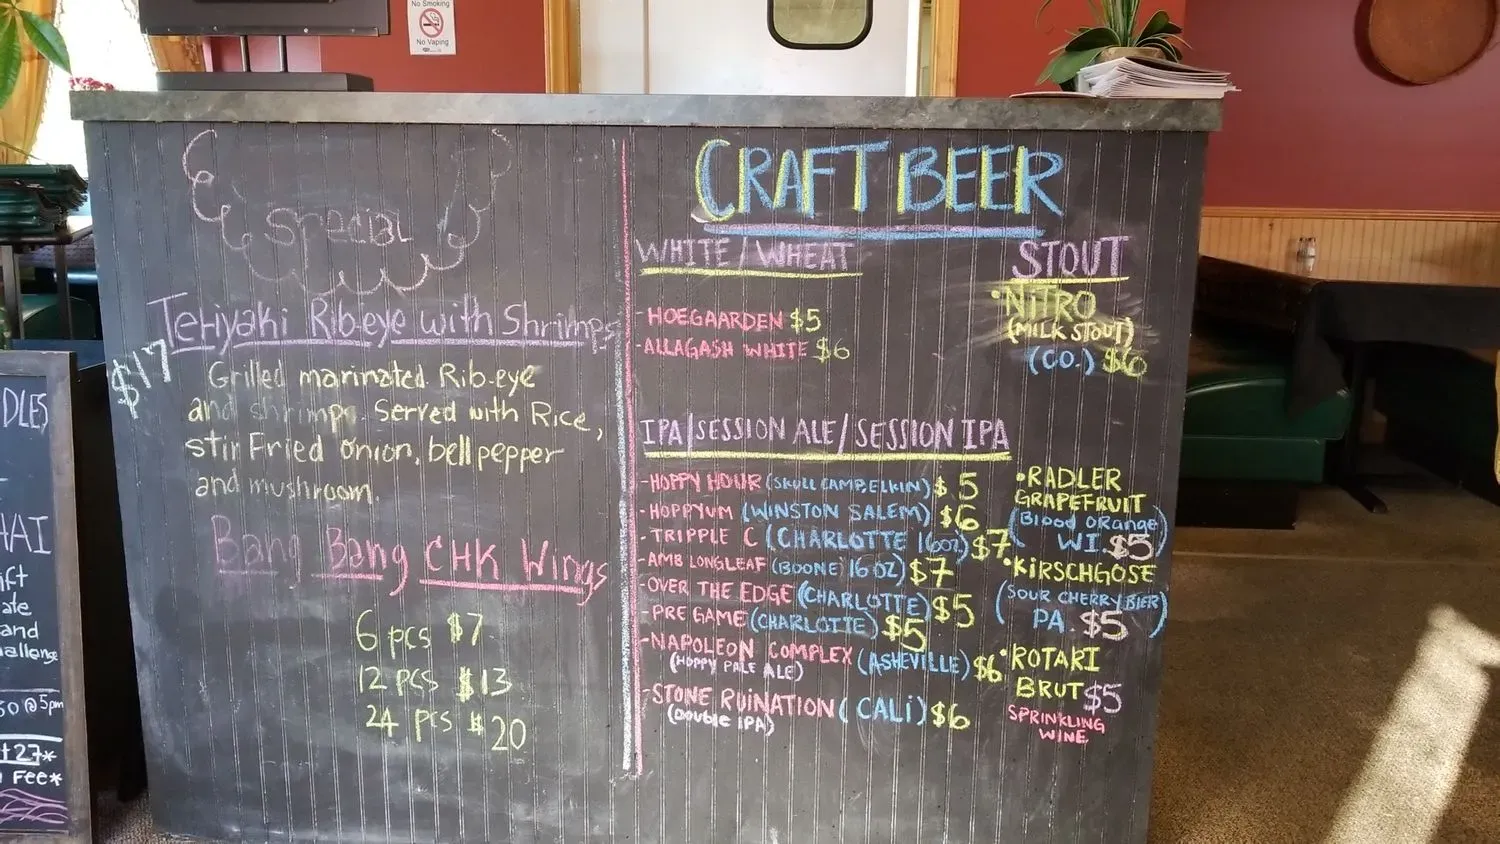 No Smoking
No Vaping
Special
Teriyaki Rib-eye with Shrimps
$17
Grilled marinated Rib-eye
and shrimps. Served with Rice,
stir Fried onion, bell pepper
and mushroom.
Bang Bang CHK Wings
6 pcs $7
12 pcs $13
24 pcs $20
CRAFT BEER
WHITE / WHEAT
- HOEGAARDEN $5
- ALLAGASH WHITE $6
STOUT
• NITRO
(MILK STOUT)
(CO.) $6
IPA/SESSION ALE/SESSION IPA
- HOPPY HOUR (SKULL CAMP, ELKIN) $5
- HOPPYUM (WINSTON SALEM) $6
- TRIPPLE C (CHARLOTTE 16OZ) $7
- AMB LONGLEAF (BOONE) 16 OZ) $7
- OVER THE EDGE (CHARLOTTE) $5
- PRE GAME (CHARLOTTE) $5
- NAPOLEON COMPLEX (ASHEVILLE) $6
(HOPPY PALE ALE)
- STONE RUINATION (CALI) $6
(DOUBLE IPA)
• RADLER
GRAPEFRUIT
(Blood ORange)
WI. $5
• KiRSCHGOSE
(SOUR CHERRY BIER)
PA. $5
• ROTARI
BRUT $5
SPRINKLING
WINE
DLES
HAI
ift
ate
and
allenge
@ 5pm
27*
FEE*